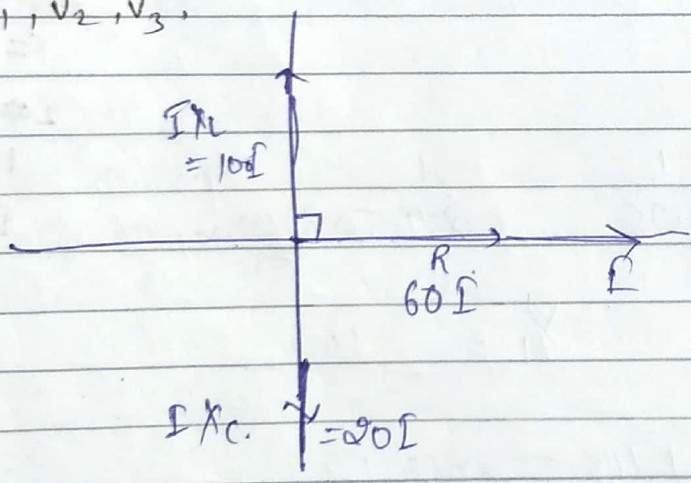 1, V2, V3.
IXL
= 100I
R
60I
I
IXC. = 20I